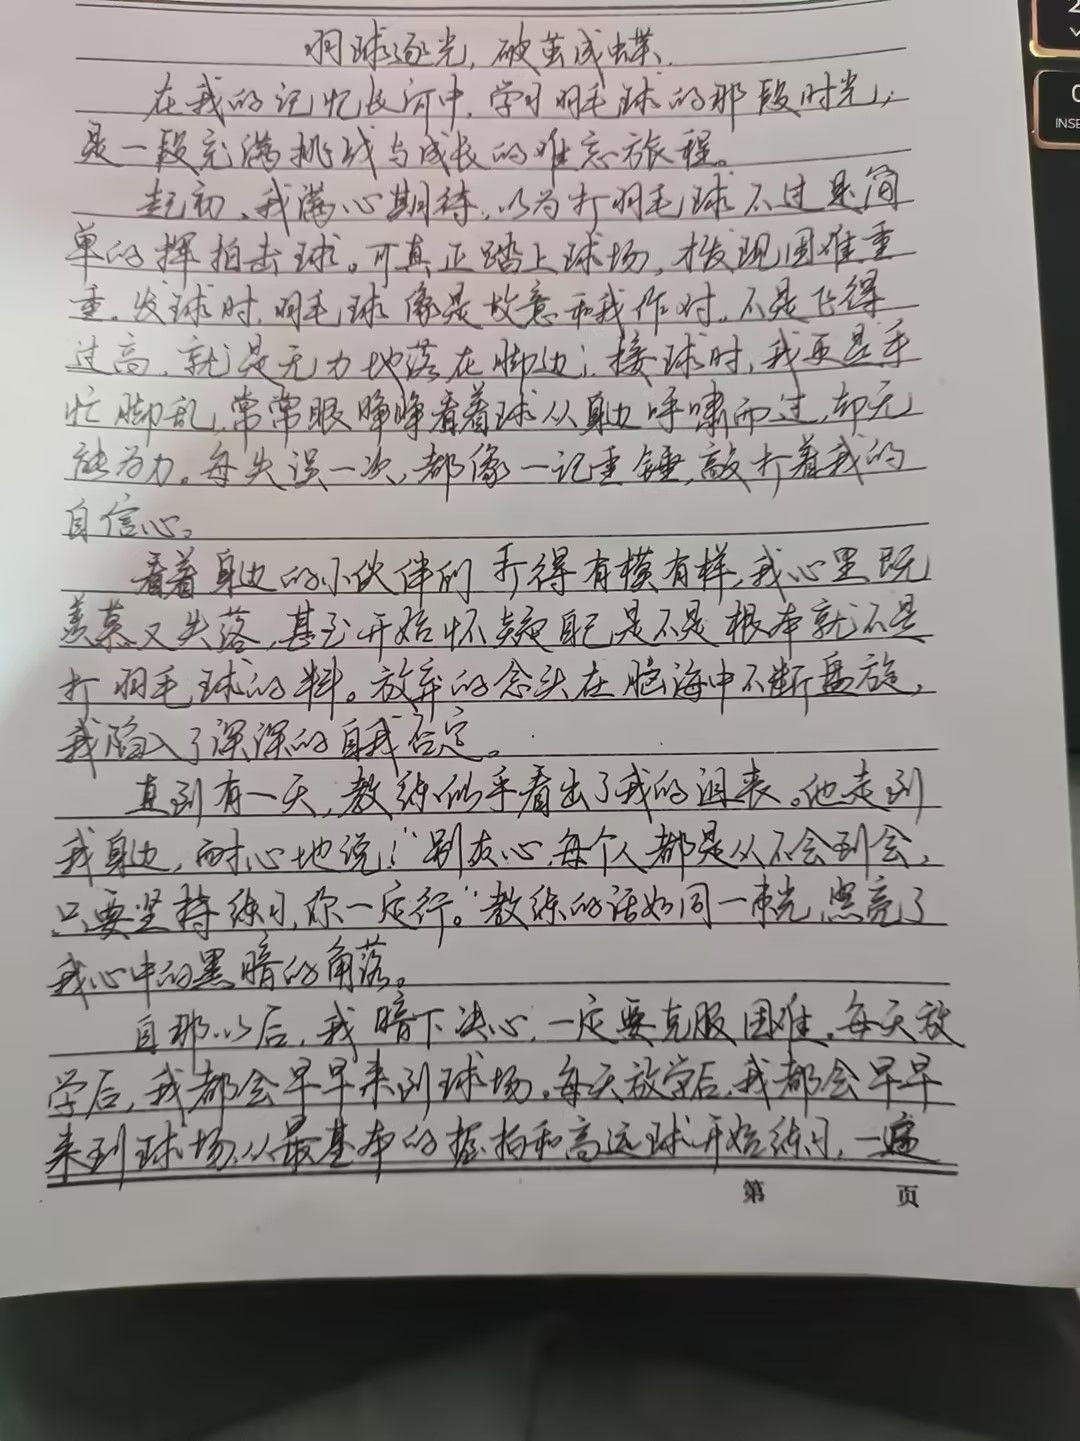 羽球逐光,破茧成蝶.
在我的记忆长河中,学习羽毛球的那段时光,
是一段充满挑战与成长的难忘旅程。
起初,我满心期待,以为打羽毛球不过是简
单的挥拍击球。可真正踏上球场,才发现困难重
重。发球时,羽毛球像是故意和我作对,不是飞得
过高,就是无力地落在脚边;接球时,我更是手
忙脚乱,常常眼睁睁看着球从身边呼啸而过,却无
能为力。每失误一次,都像一记重锤,敲打着我的
自信心。
看着身边的小伙伴们打得有模有样,我心里既
羡慕又失落,甚至开始怀疑自己是不是根本就不是
打羽毛球的料。放弃的念头在脑海中不断盘旋,
我陷入了深深的自我否定。
直到有一天,教练似乎看出了我的沮丧。他走到
我身边,耐心地说:“别灰心,每个人都是从不会到会,
只要坚持练习,你一定行。”教练的话如同一束光,照亮了
我心中的黑暗的角落。
自那以后,我暗下决心,一定要克服困难。每天放
学后,我都会早早来到球场。每天放学后,我都会早早
来到球场,从最基本的握拍和高远球开始练习,一遍
第 页
INSE